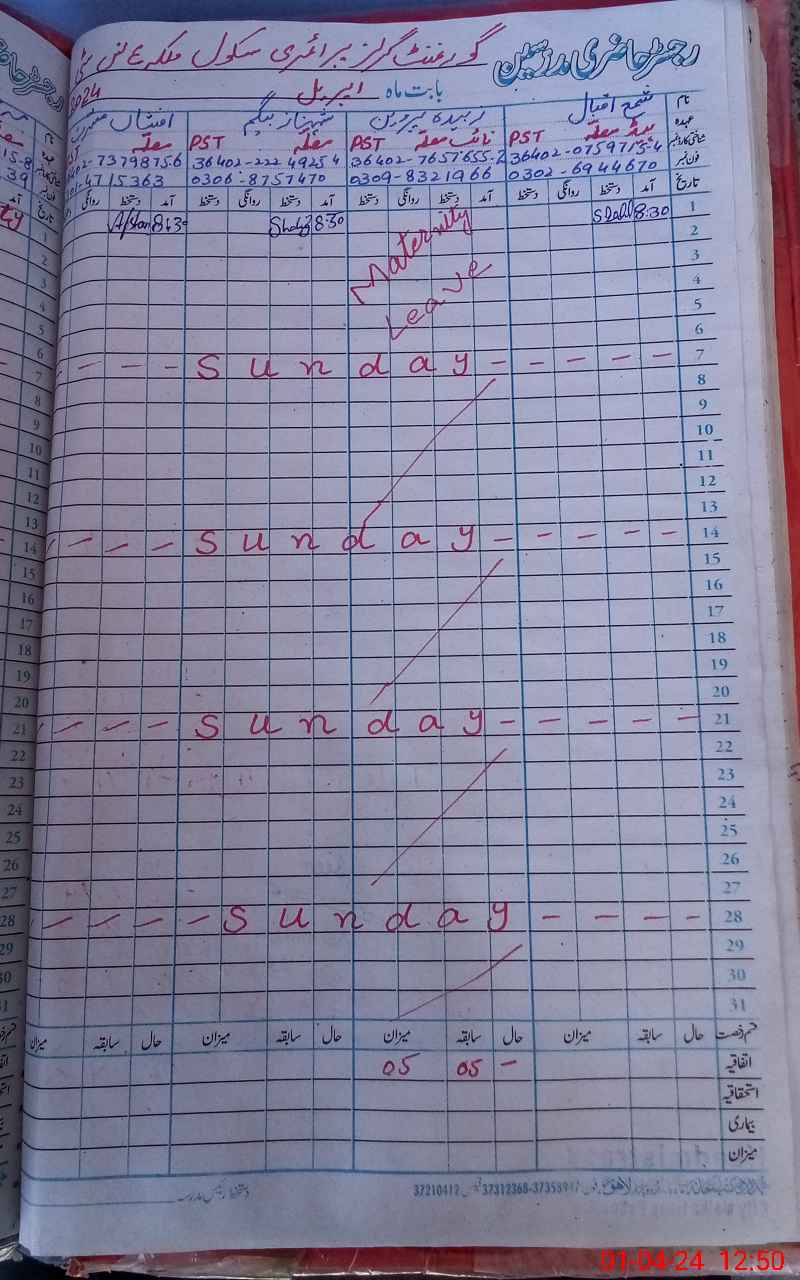 رجسٹر حاضری مدرسین گورنمنٹ گرلز پرائمری سکول ملکہ
بابت ماہ اپریل 2024
نام شمع اقبال زبیدہ پروین شہناز بیگم افشاں
عہدہ ہیڈ معلمہ PST نائب معلمہ PST معلمہ PST معلمہ
شناختی کارڈ نمبر 36402-0759715-4 36402-7657655-2 36402-2224925 4 402-7379875-6
فون نمبر 0302-6944670 0309-8321966 0306-8757470 4715363
تاریخ آمد دستخط روانگی دستخط آمد دستخط روانگی دستخط آمد دستخط روانگی دستخط آمد دستخط روانگی
1 8:30 8:30 8:30
Maternity
2
3
Leave
4
5
6
7 Sunday
8
9
10
11
12
13
14 Sunday
15
16
17
18
19
20
21 Sunday
22
23
24
25
26
27
28 Sunday
29
30
31
قسم رخصت حال سابقہ میزان حال سابقہ میزان حال سابقہ میزان حال سابقہ میزان
اتفاقیہ - 05 05
استحقاقیہ
بیماری
میزان
دستخط رئیس مدرسہ
37210412 37312368-37358917
01-04-24 12:50